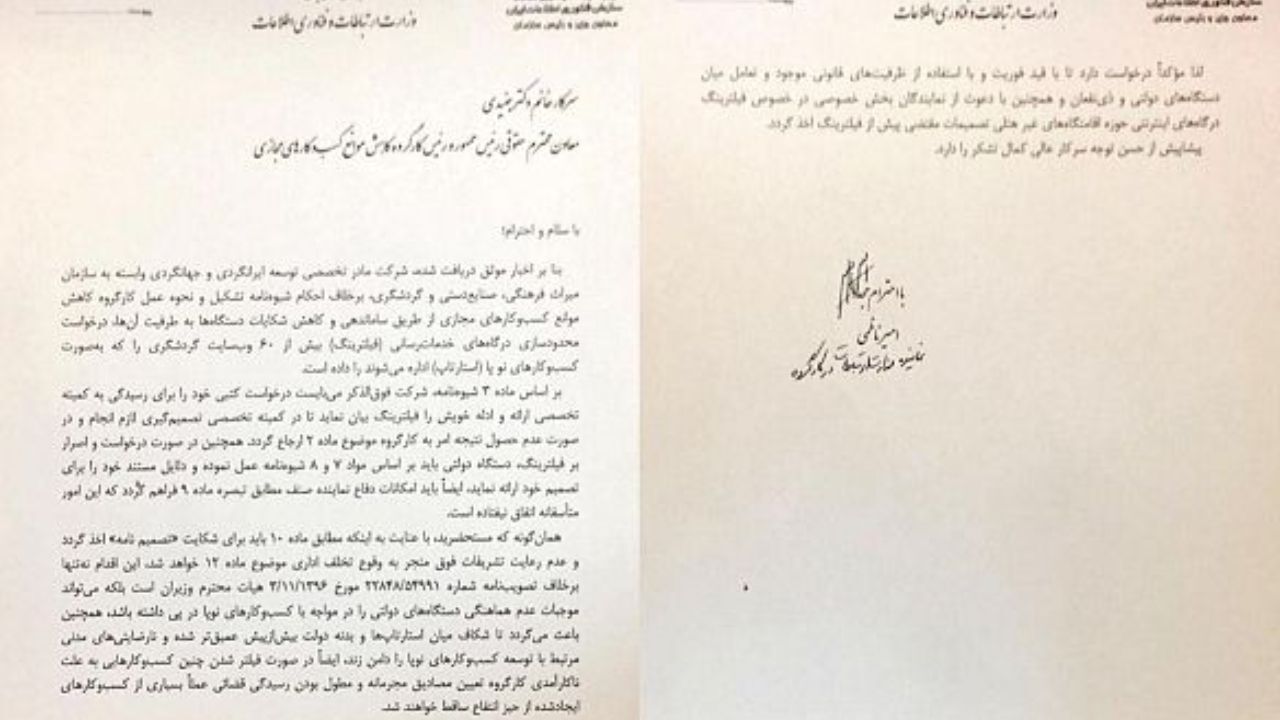 وزارت ارتباطات و فناوری اطلاعات
سازمان فناوری اطلاعات ایران
معاون وزیر و رئیس سازمان
سرکار خانم دکتر جنیدی
معاون محترم حقوقی رئیس جمهور و رئیس کارگروه کاهش موانع کسب و کارهای مجازی
با سلام و احترام؛
بنا بر اخبار موثق دریافت شده، شرکت مادر تخصصی توسعه ایرانگردی و جهانگردی وابسته به سازمان
میراث فرهنگی، صنایع‌دستی و گردشگری، برخلاف احکام شیوه‌نامه تشکیل و نحوه عمل کارگروه کاهش
موانع کسب‌وکارهای مجازی از طریق ساماندهی و کاهش شکایات دستگاه‌ها به ظرفیت آن‌ها، درخواست
محدودسازی درگاه‌های خدمات‌رسانی (فیلترینگ) بیش از ۶۰ وب‌سایت گردشگری را که به‌صورت
کسب‌وکارهای نو پا (استارتاپ) اداره می‌شوند را داده است.
بر اساس ماده ۳ شیوه‌نامه، شرکت فوق‌الذکر می‌بایست درخواست کتبی خود را برای رسیدگی به کمیته
تخصصی ارائه و ادله خویش را فیلترینگ بیان نماید تا در کمیته تخصصی تصمیم‌گیری لازم انجام و در
صورت عدم حصول نتیجه امر به کارگروه موضوع ماده ۲ ارجاع گردد. همچنین در صورت درخواست و اصرار
بر فیلترینگ، دستگاه دولتی باید بر اساس مواد ۷ و ۸ شیوه‌نامه عمل نموده و دلایل مستند خود را برای
تصمیم خود ارائه نماید، ایضاً باید امکانات دفاع نماینده صنف مطابق تبصره ماده ۹ فراهم گردد که این امور
متأسفانه اتفاق نیفتاده است.
همان‌گونه که مستحضرید، با عنایت به اینکه مطابق ماده ۱۰ باید برای شکایت «تصمیم نامه» اخذ گردد
و عدم رعایت تشریفات فوق منجر به وقوع تخلف اداری موضوع ماده ۱۲ خواهد شد، این اقدام نه‌تنها
برخلاف تصویب‌نامه شماره ۲۲۸۴۸/۵۴۹۹۱ مورخ ۳/۱۱/۱۳۹۶ هیات محترم وزیران است بلکه می‌تواند
موجبات عدم هماهنگی دستگاه‌های دولتی را در مواجه با کسب‌وکارهای نوپا در پی داشته باشد، همچنین
باعث می‌گردد تا شکاف میان استارتاپ‌ها و بدنه دولت بیش‌ازپیش عمیق‌تر شده و نارضایتی‌های مدنی
مرتبط با توسعه کسب‌وکارهای نوپا را دامن زند، ایضاً در صورت فیلتر شدن چنین کسب‌وکارهایی به علت
ناکارآمدی کارگروه تعیین مصادیق مجرمانه و مطول بودن رسیدگی قضائی عملاً بسیاری از کسب‌وکارهای
ایجادشده از حیز انتفاع ساقط خواهند شد.
وزارت ارتباطات و فناوری اطلاعات
معاون وزیر و رئیس سازمان
لذا مؤکداً درخواست دارد تا با قید فوریت و با استفاده از ظرفیت‌های قانونی موجود و تعامل میان
دستگاه‌های دولتی و ذی‌نفعان و همچنین با دعوت از نمایندگان بخش خصوصی در خصوص فیلترینگ
درگاه‌های اینترنتی حوزه اقامتگاه‌های غیر هتلی تصمیمات مقتضی پیش از فیلترینگ اخذ گردد.
پیشاپیش از حسن توجه سرکار عالی کمال تشکر را دارد.
با احترام
امیر ناظمی
نماینده وزارت ارتباطات در کارگروه